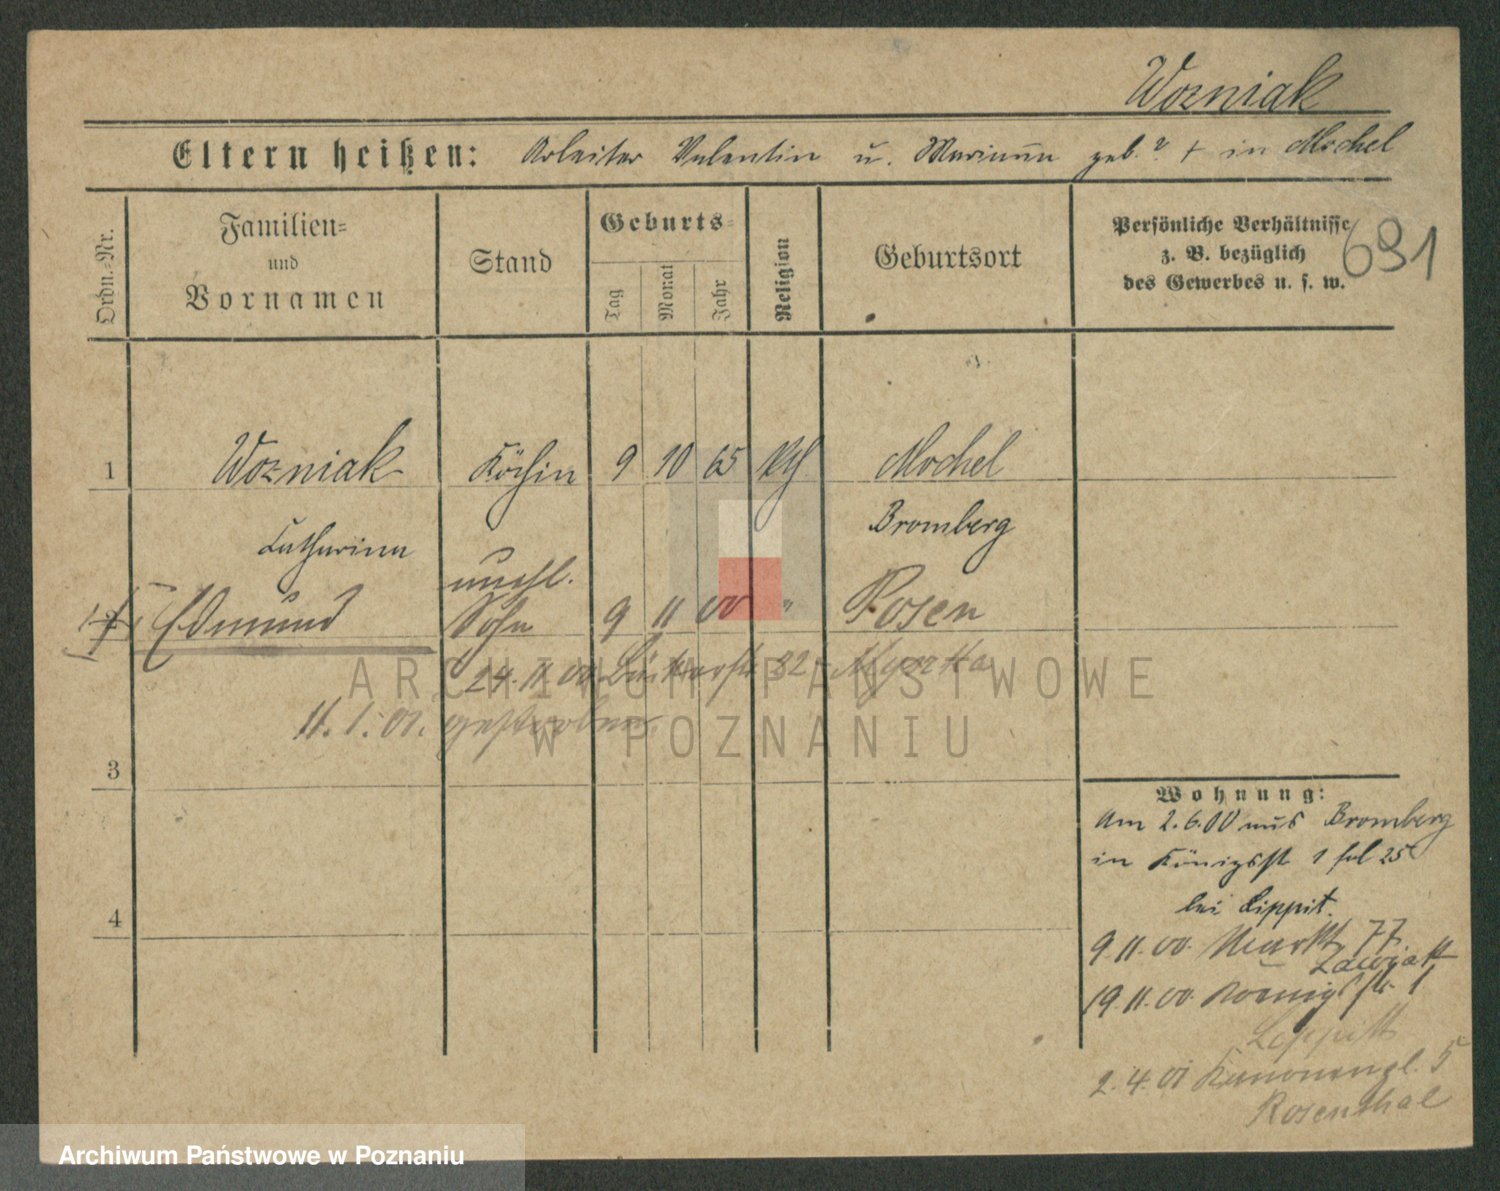 Wozniak
Eltern heißen: Arbeiter Valentin u. Marianna geb. ? + in Mochel
Ordn.-Nr.
Familien-
und
Vornamen
Stand
Geburts-
Tag
Monat
Jahr
Religion
Geburtsort
Persönliche Verhältnisse
z. B. bezüglich
des Gewerbes u. s. w.
691
1 Wozniak Köchin 9 10 65 kth Mochel
Catharina Bromberg
unehl.
2 Edmund Sohn 9 11 00 " Rosen
24. 11. 00 32
11. 1. 01. gestorben.
ARCHIWUM PAŃSTWOWE
W POZNANIU
3
4
Wohnung:
Am 2.6.00 aus Bromberg
in Königsst 1 fol 25
bei Lippit.
9. 11. 00. Markt 77.
Zawzak
19. 11. 00. Koenigsstr. 1
Lippitt
2. 4. 01 Kanonenpl. 5
Rosenthal
Archiwum Państwowe w Poznaniu